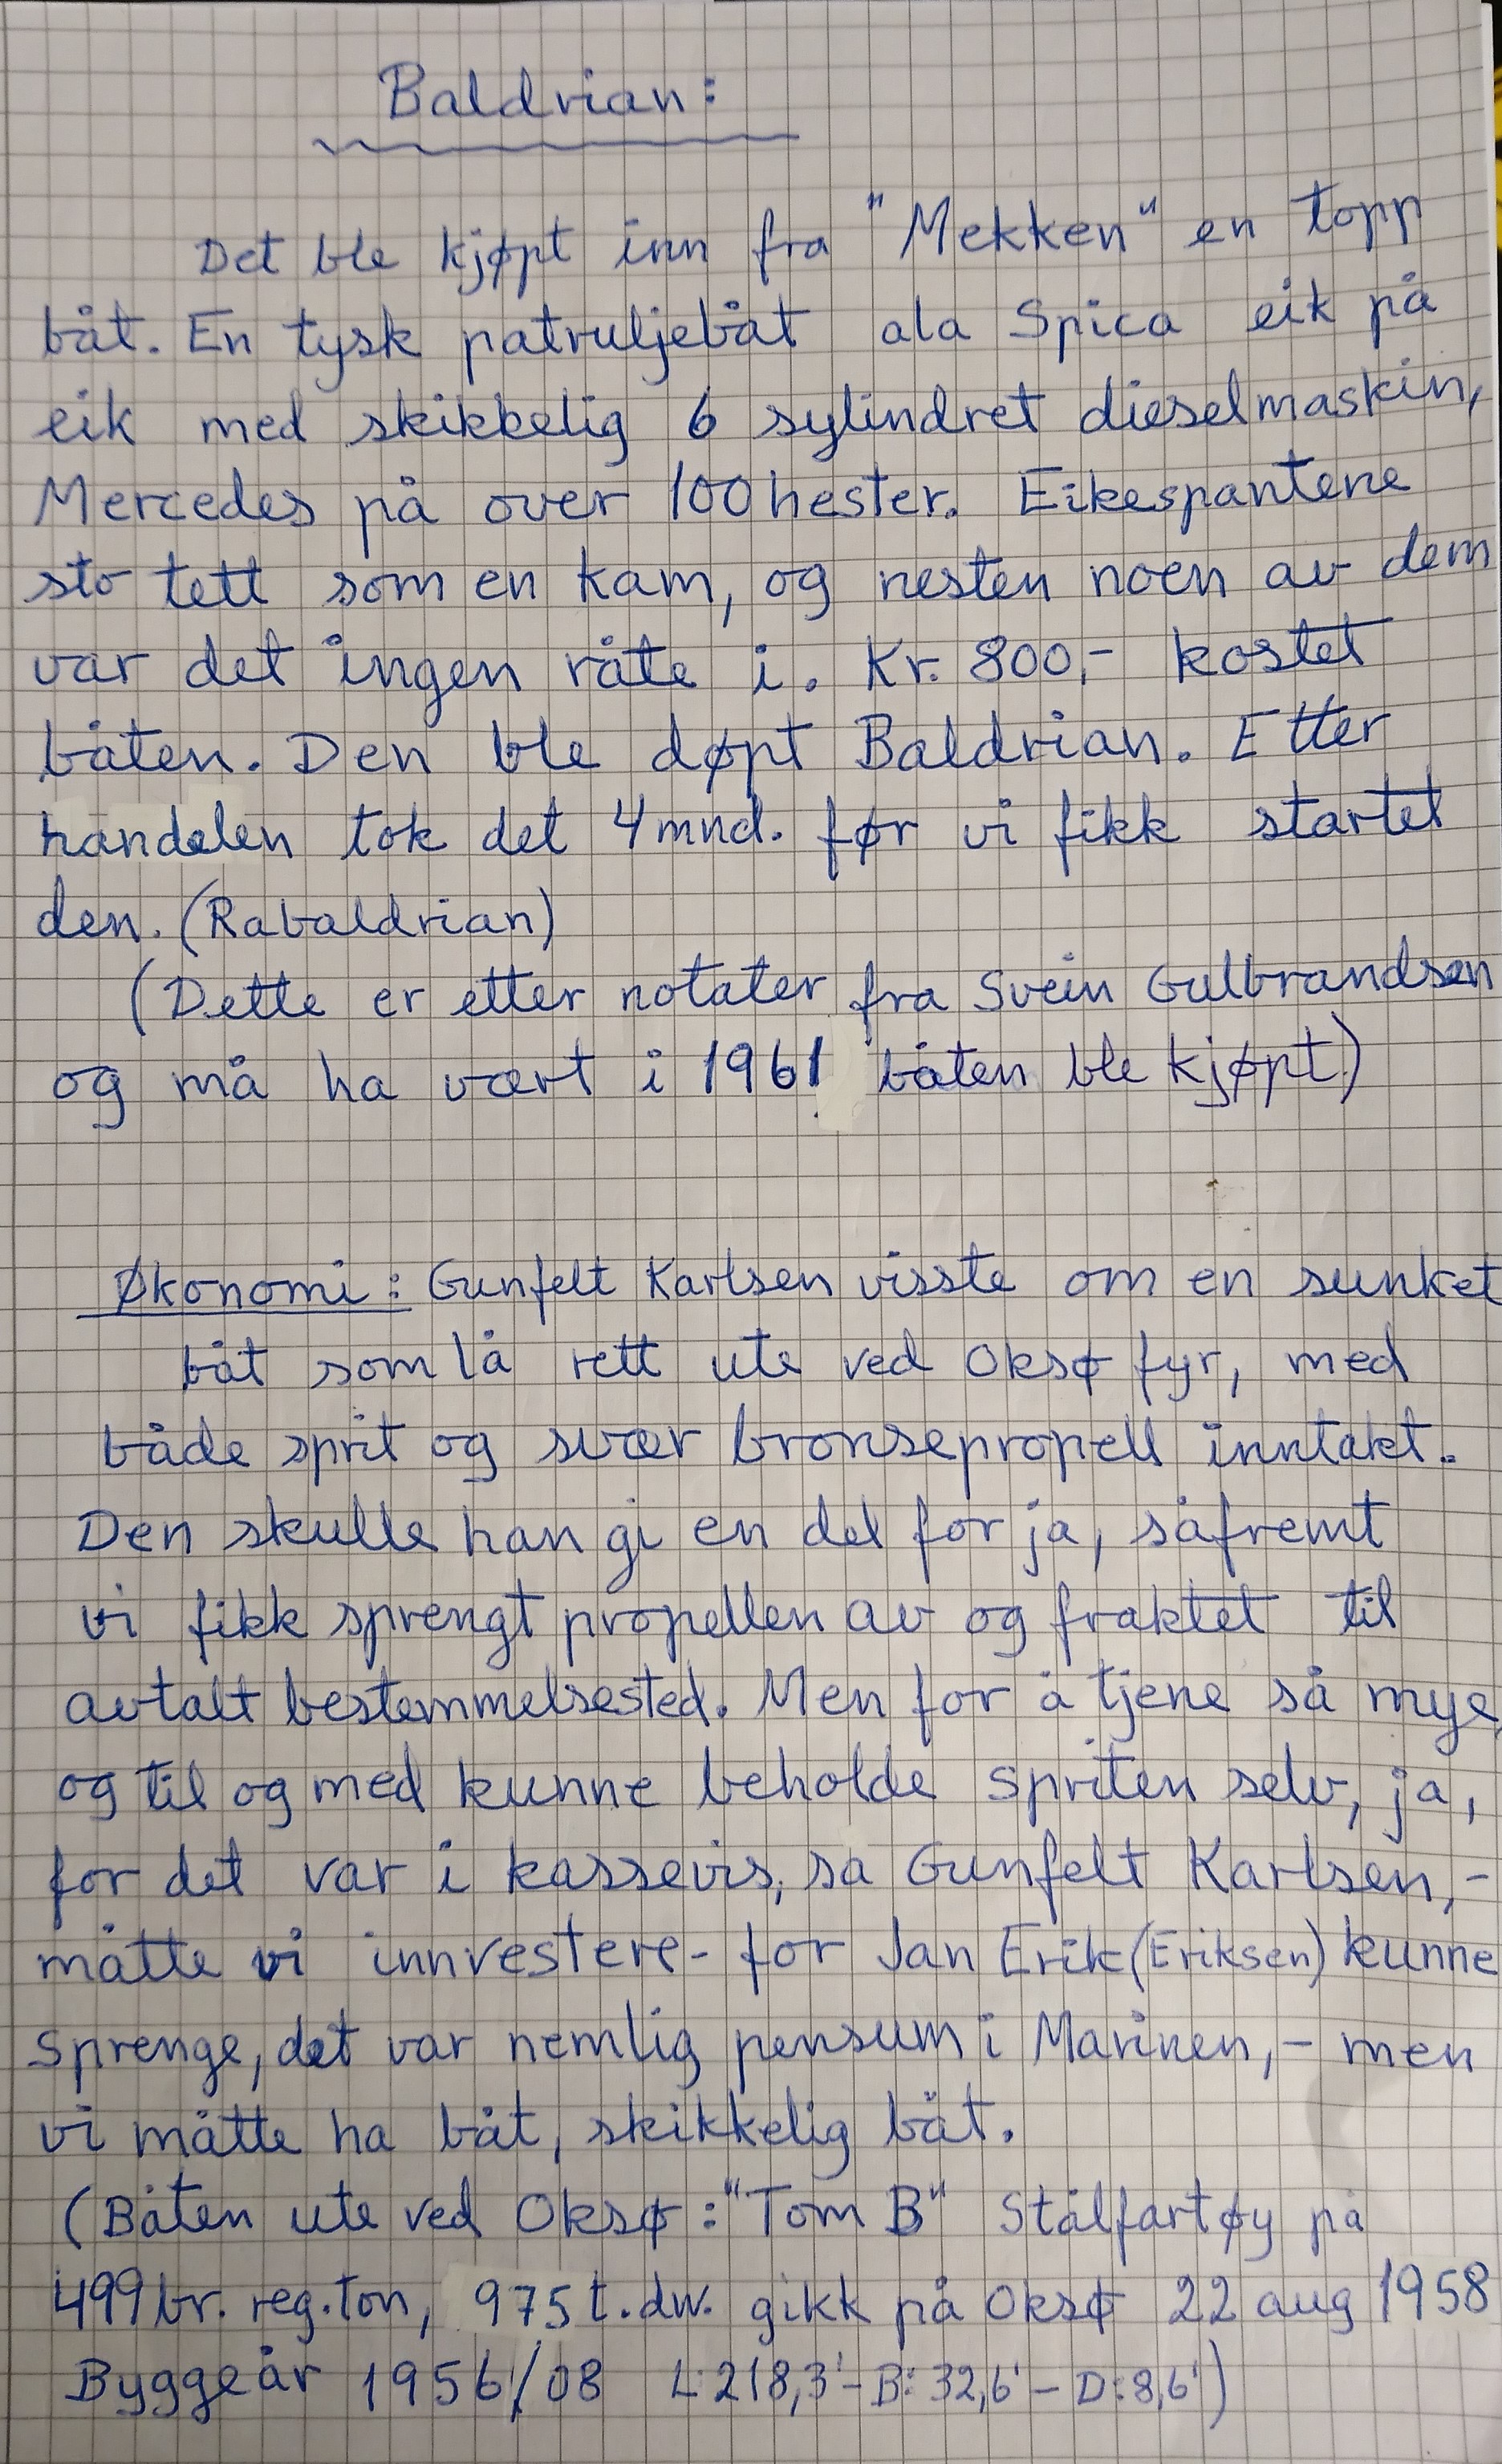 Baldrian:
Det ble kjøpt inn fra "Mekken" en topp
båt. En tysk patruljebåt ala Spica eik på
eik med skikkelig 6 sylindret dieselmaskin,
Mercedes på over 100 hester. Eikespantene
sto tett som en kam, og nesten noen av dem
var det ingen råte i. Kr. 800,- kostet
båten. Den ble døpt Baldrian. Etter
handelen tok det 4 mnd. før vi fikk startet
den. (Rabaldrian)
(Dette er etter notater fra Svein Gulbrandsen
og må ha vært i 1961 båten ble kjøpt.)
Økonomi: Gunfelt Karlsen visste om en sunket
båt som lå rett ute ved Oksø fyr, med
både sprit og svær bronsepropell inntakt.
Den skulle han gi en del for ja, såfremt
vi fikk sprengt propellen av og fraktet til
avtalt bestemmelsested. Men for å tjene så mye,
og til og med kunne beholde spriten selv, ja,
for det var i kassevis, sa Gunfelt Karlsen,-
måtte vi innvestere- for Jan Erik (Eriksen) kunne
sprenge, det var nemlig pensum i Marinen,- men
vi måtte ha båt, skikkelig båt.
(Båten ute ved Oksø: "Tom B" Stålfartøy på
499 br. reg. ton, 975 t. dw. gikk på Oksø 22 aug 1958
Byggeår 1956/08 L:218,3'- B: 32,6' - D:8,6')